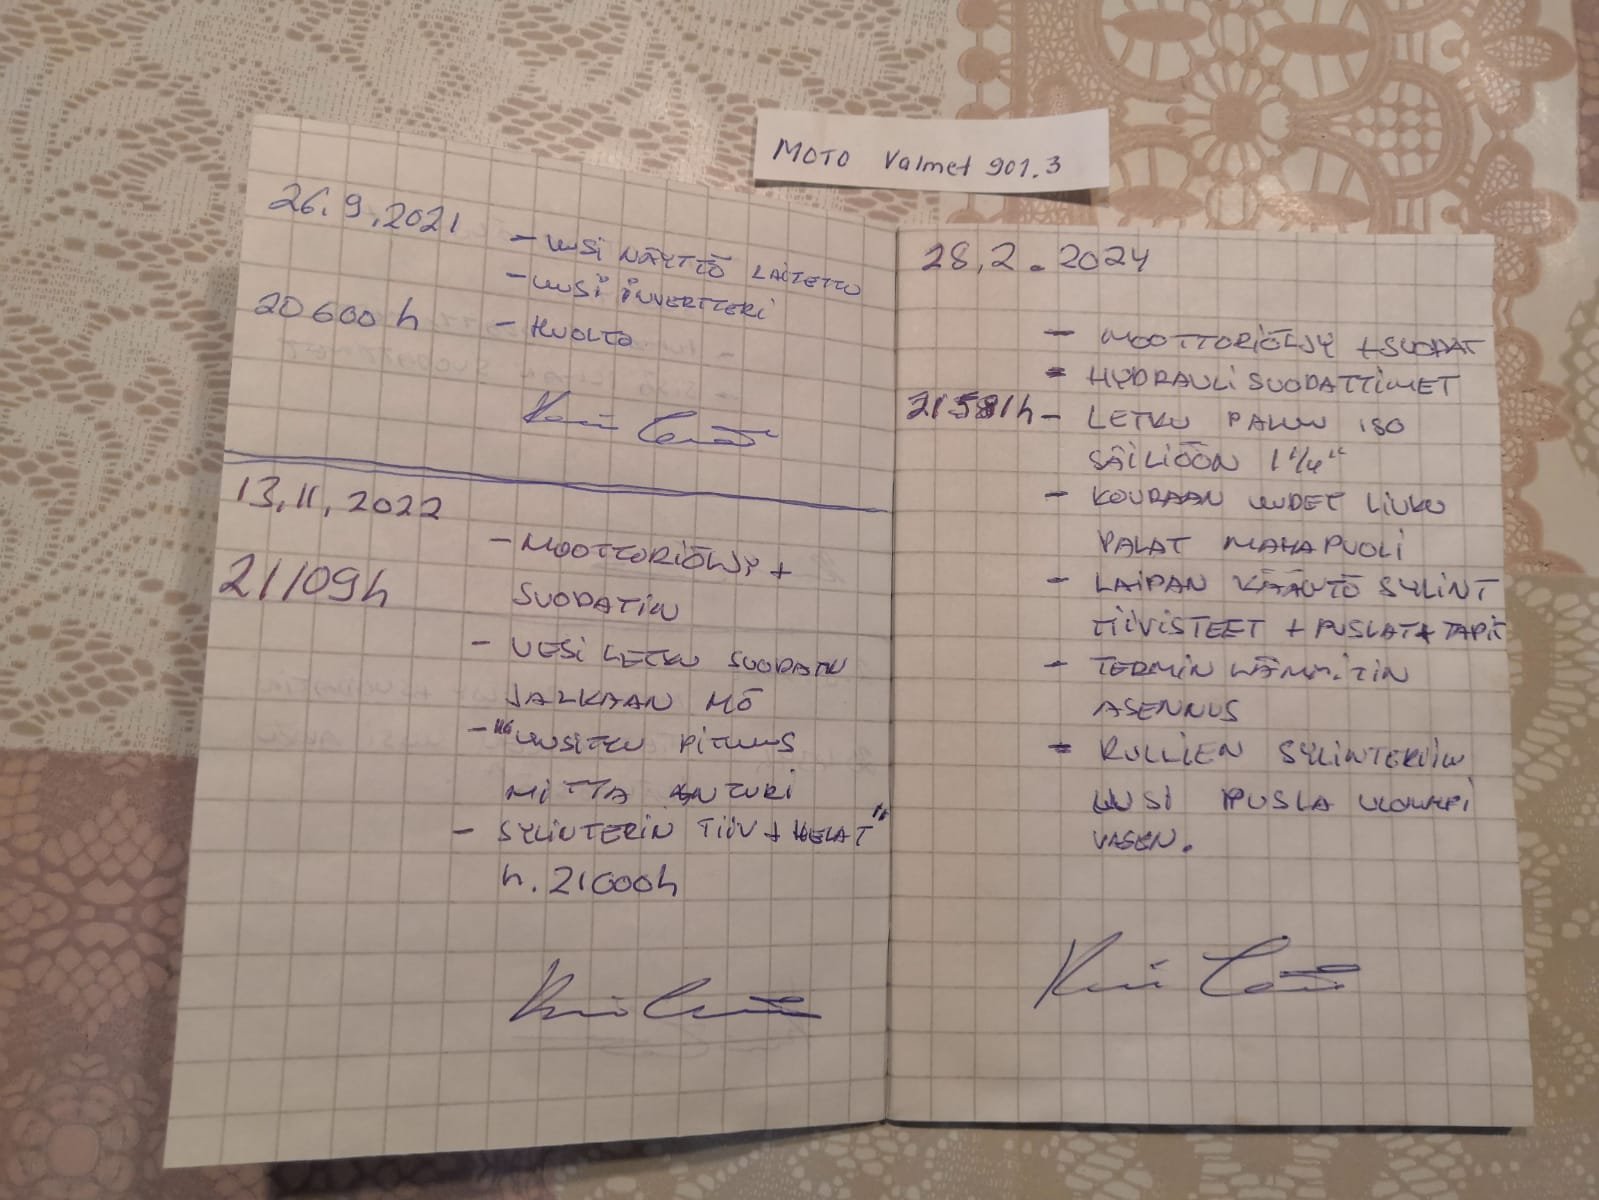 MOTO Valmet 901.3
26.9.2021
- UUSI NÄYTTÖ LAITETTU
- UUSI INVERTTERI
20600 h - HUOLTO
13.11.2022
- MOOTTORIÖLJY +
21109h
SUODATIN
- VESI LETKU SUODATIN
JALKAAN MÖ
- UUSITTU PITUUS
MITTA ANTURI
- SYLINTERIN TIIV + HELAT"
n. 21000h
28.2.2024
- MOOTTORIÖLJY + SUODAT
- HYDRAULISUODATTIMET
21581h - LETKU PALUU ISO
SÄILIÖÖN 1 1/4"
- KOURAAN UUDET LIUKU
PALAT MAHAPUOLI
- LAIPAN KÄÄNTÖ SYLINT
TIIVISTEET + PUSLAT + TAPIT
- TERMIN LÄMMITIN
ASENNUS
- RULLIEN SYLINTERIIN
UUSI PUSLA ULOMPI
VASEN.